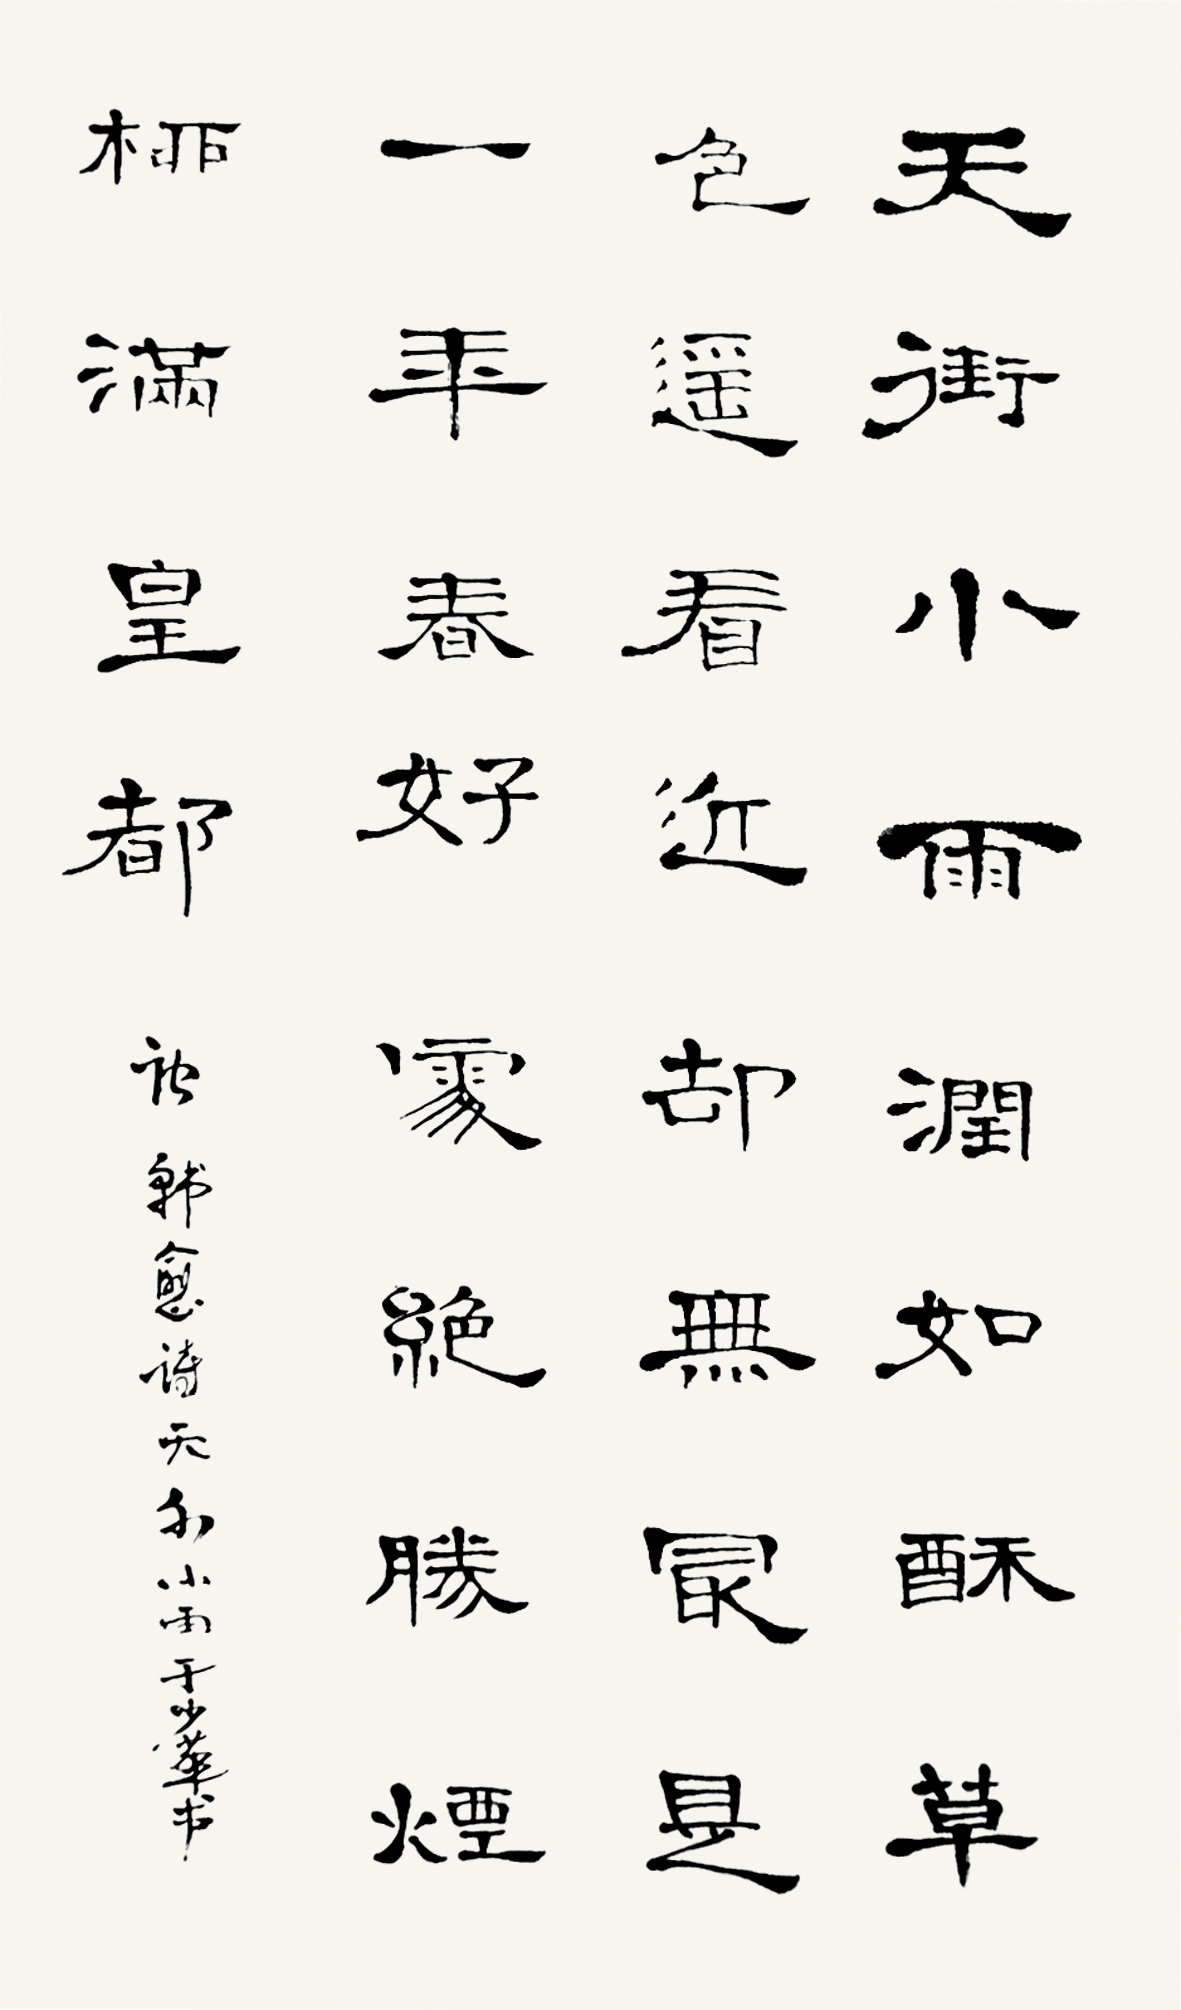 天街小雨潤如酥草
色遥看近却無最是
一年春好處絶勝煙
柳滿皇都
韩愈诗天小雨于少華书